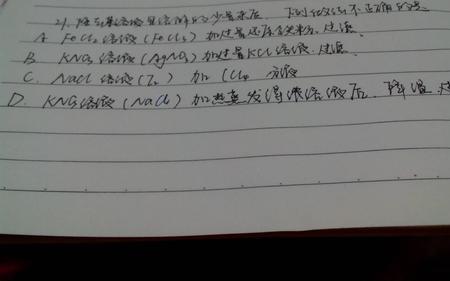 21. 除去某溶液里溶解的少量杂质,下列做法不正确的是
A FeCl₂溶液(FeCl₃)加过量还原铁粉,过滤
B. KNO₃溶液(AgNO₃)加过量KCl溶液,过滤
C. NaCl溶液(I₂)加 CCl₄ 分液
D. KNO₃溶液(NaCl)加热蒸发得浓溶液后,降温,